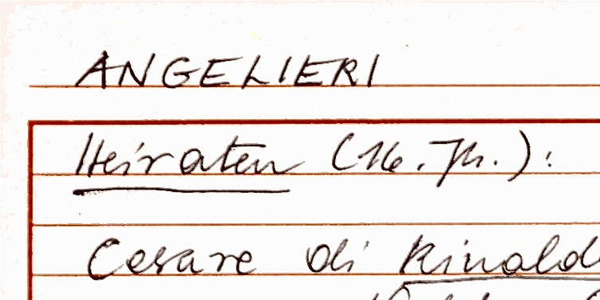 ANGELIERI
Heiraten (16. Jh.):
Cesare di Rinald